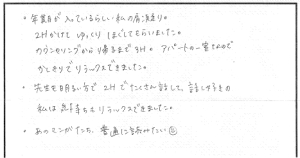 ・年数が入っているらしい私の肩凝り。
2Hかけて ゆっくり ほぐしてもらいました。
カウンセリングから帰るまで3H。アパートの一室なので
かくれがでリラックスできました。
・先生も明るい方で2Hでたくさん話して、話し好きの
私は気持ちもリラックスできました。
・あのミンがたち、普通に